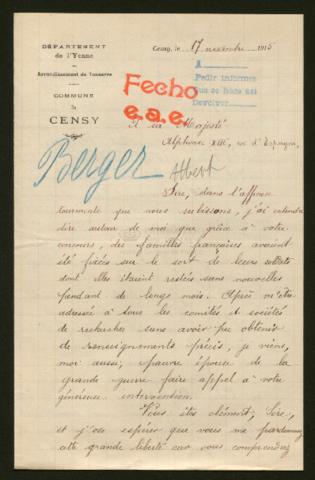 DÉPARTEMENT
de l'Yonne
Arrondissement de Tonnerre
COMMUNE
de
CENSY
Censy, le 17 novembre 1915
A
Pedir informes
que se hace así
Devolver
Fecho
e.a.e.
A sa Majesté
Alphonse XIII, roi d'Espagne,
Berger Albert
Sire, dans l'affreuse
tourmente que nous subissons, j'ai entendu
dire autour de moi que grâce à votre
concours, des familles françaises avaient
été fixées sur le sort de leurs soldats
dont elles étaient restées sans nouvelles
pendant de longs mois. Après m'être
adressée à tous les comités et sociétés
de recherches sans avoir pu obtenir
de renseignements précis, je viens,
moi aussi, pauvre épouse de la
grande guerre faire appel à votre
généreuse intervention.
Vous êtes clément, Sire,
et j'ose espérer que vous me pardonnerez
cette grande liberté car vous comprendrez